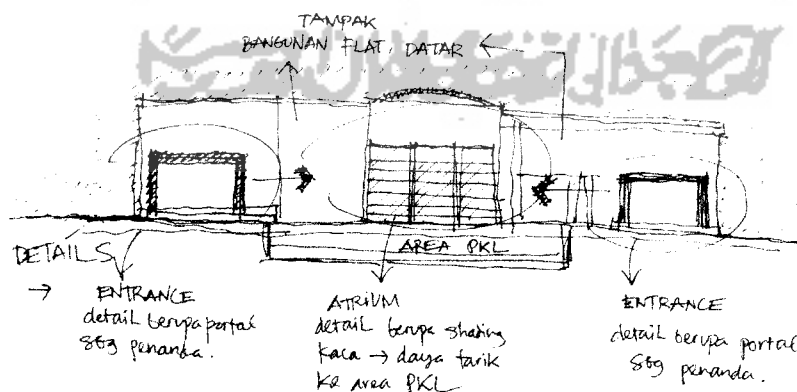 TAMPAK
BANGUNAN FLAT, DATAR
AREA PKL
DETAILS
→
ENTRANCE
detail berupa portal
sbg penanda.
ATRIUM
detail berupa shading
kaca → daya tarik
ke area PKL
ENTRANCE
detail berupa portal
sbg penanda.